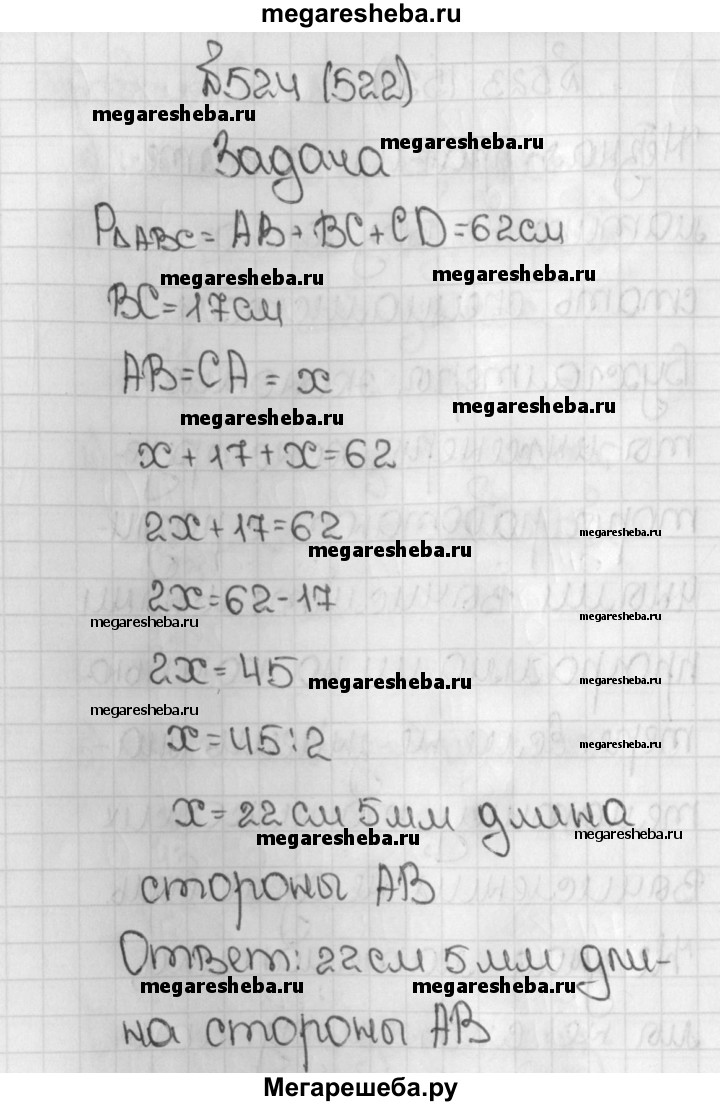 megaresheba.ru
№524 (522)
megaresheba.ru
megaresheba.ru
Задача
P△ABC = AB + BC + CD = 62 см
megaresheba.ru
megaresheba.ru
BC = 17 см
AB = CA = x
megaresheba.ru
megaresheba.ru
x + 17 + x = 62
2x + 17 = 62
megaresheba.ru
megaresheba.ru
2x = 62 - 17
megaresheba.ru
megaresheba.ru
2x = 45
megaresheba.ru
megaresheba.ru
megaresheba.ru
x = 45 : 2
megaresheba.ru
x = 22 см 5 мм длина
megaresheba.ru
megaresheba.ru
стороны AB
Ответ: 22 см 5 мм дли-
megaresheba.ru
megaresheba.ru
на стороны AB
Мегарешеба.ру